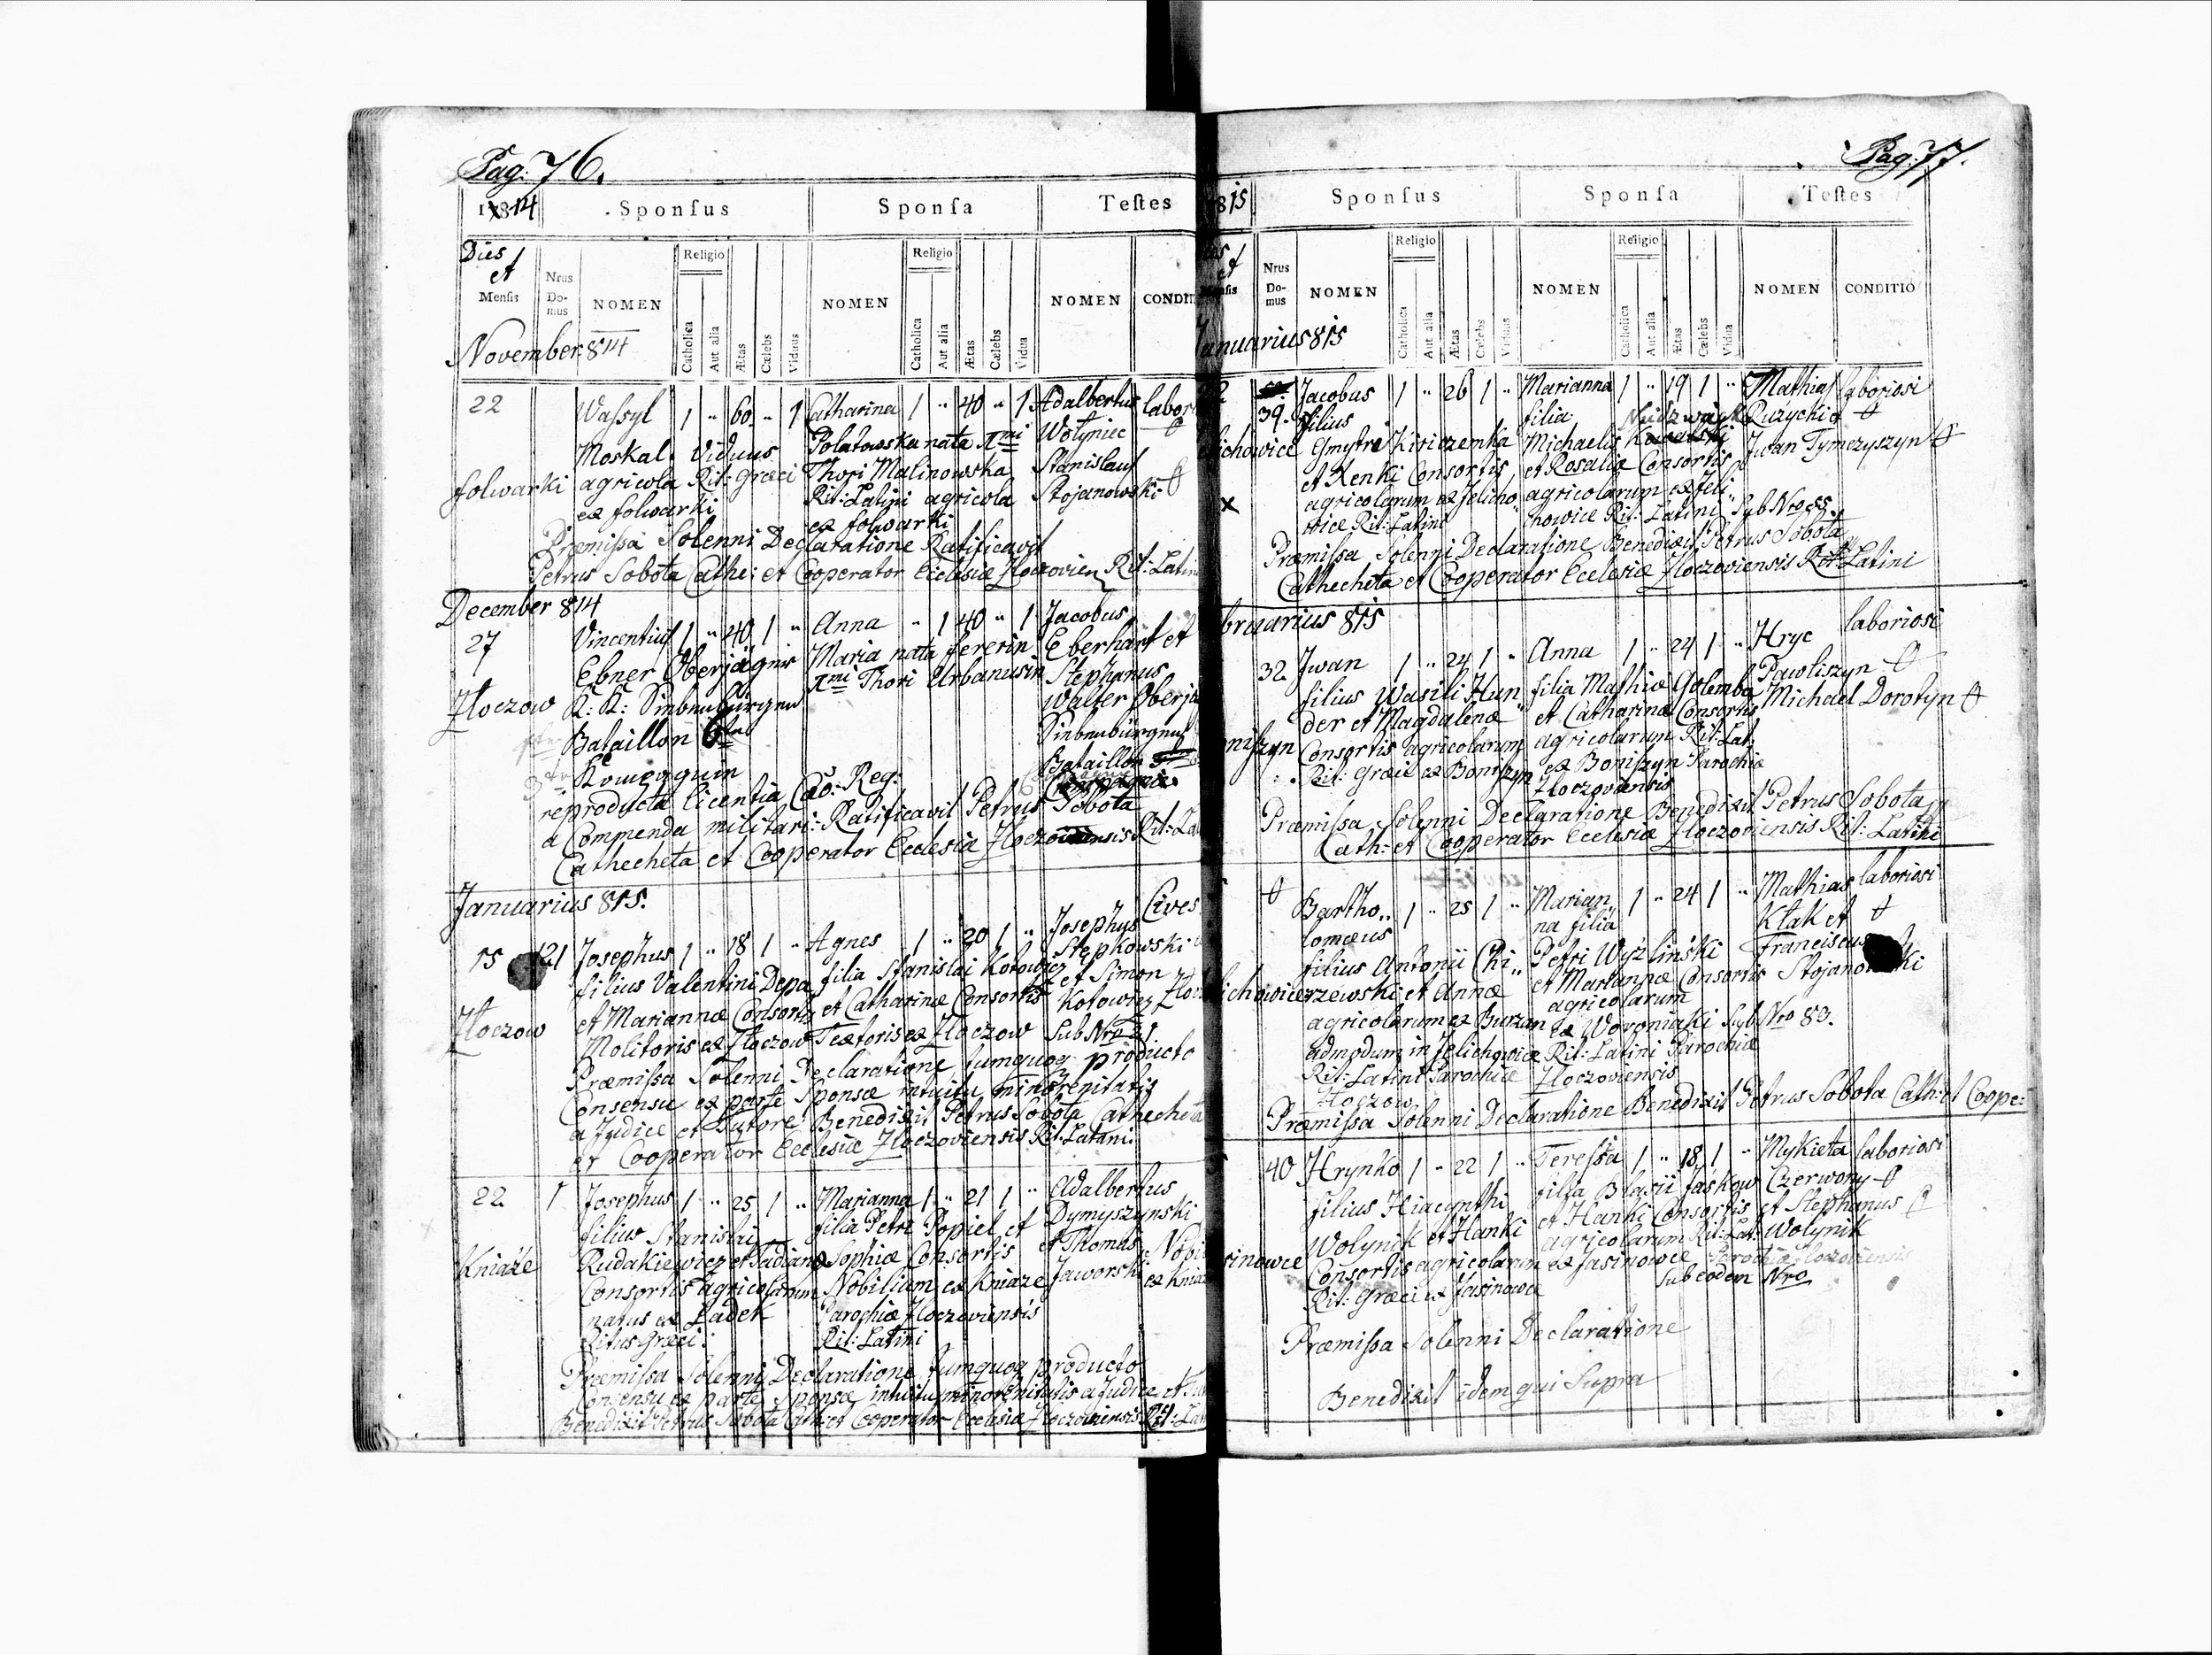 Pag: 76.
1814 Sponsus Sponsa Testes
Dies et Mensis Nrus Domus NOMEN Religio Catholica Aut alia Ætas Cælebs Viduus NOMEN Religio Catholica Aut alia Ætas Cælebs Vidua NOMEN CONDIT
November 814
22 Wassyl 1 " 60 " 1 Catharina 1 " 40 " 1 Adalbertus labor
Moskal Viduus Polatowska nata Xmi Wołyniec
folwarki agricola Rit: Græci Thori Malinowska Stanislaus
ex folwarki Rit: Latini agricola Stojanowski
ex folwarki
Præmissa Solenni Declaratione Ratificavit
Petrus Sobota Cathe: et Cooperator Ecclesiæ Złoczovien Rit: Latin
December 814
27 Vincentius 1 " 40 1 " Anna " 1 40 " 1 Jacobus
Ebner Oberjägnr Maria nata fererin Eberhart et
Złoczow K: K: Sinbenbürgnr Xmi Thori Urbanusin Stephanus
Bataillon 6tn Walter Oberjä
3tn Kompaguin Sinbenbürgnr
Bataillon
reproducta licentia Cæo: Reg:
a Commenda militari: Ratificavit Petrus Sobota
Cathecheta et Cooperator Ecclesiæ Złoczoviensis Rit: La
Januarius 815. Cives
15 121 Josephus 1 " 18 1 " Agnes 1 " 20 1 " Josephus
filius Valentini Depa filia Stanislai Kotowicz Stepkowski
Złoczow et Mariannæ Consortis et Catharinæ Consortis et Simon
Molitoris ex Złoczow Textoris ex Złoczow Kotowicz
Sub Nro 21
Præmissa Solenni Declaratione, tumquoq producto
Consensu ex parte Sponsæ intuitu minorenitatis
a Judice et Tutore: Benedixit Petrus Sobota Cathecheta
et Cooperator Ecclesiæ Złoczoviensis Rit: Latini.
22 1 Josephus 1 " 25 1 " Marianna 1 " 21 1 " Adalbertus
filius Stanislai filia Petri Popiel et Dymyszynski
Kniaże Rudakiewicz et Tadianæ Sophiæ Consortis et Thomas Nobi
Consortis agricolarum Nobilium ex Kniaze Jaworski ex Kniaz
natus ex Ladek Parochiæ Złoczoviensis
Ritus Græci: Rit: Latini
Præmissa Solenni Declaratione tumquoq producto
Consensu ex parte Sponsæ intuitu minorenitatis a Judice et
Benedixit Petrus Sobota Cath: et Cooperator Ecclesiæ Złoczoviensis Rit: Lat
Pag: 77.
815 Sponsus Sponsa Testes
et Mensis Nrus Domus NOMEN Religio Catholica Aut alia Ætas Cælebs Viduus NOMEN Religio Catholica Aut alia Ætas Cælebs Vidua NOMEN CONDITIO
Januarius 815
22 39. Jacobus 1 " 26 1 " Marianna 1 " 19 1 " Mathias laboriosi
filius filia Ruzycki
lichowice Gmytre Kiriczemka Michaelis Jwan Tymczyszyn
et Xenki Consortis et Rosaliæ Consortis
x agricolarum ex Jelicho agricolarum ex Jeli
wice Rit: Latini chowice Rit: Latini Sub Nro 55.
Præmissa Solenni Declaratione Benedixit Petrus Sobota
Cathecheta et Cooperator Ecclesiæ Złoczoviensis Rit: Latini
bruarius 815
32 Jwan 1 " 24 1 " Anna 1 " 24 1 " Hryc laboriosi
filius Wasili Hun filia Mathiæ Golemba Pawliszyn
der et Magdalenæ et Catharinæ Consortis Michael Dorotyn
niszyn Consortis agricolarum agricolarum Rit: Lat:
Rit: Græci ex Boniszyn ex Boniszyn Parochiæ
Złoczoviensis
Præmissa Solenni Declaratione Benedixit Petrus Sobota
Cath: et Cooperator Ecclesiæ Złoczoviensis Rit: Latini
Bartho" 1 " 25 1 " Marian" 1 " 24 1 " Mathias laboriosi
lomæus na filia Kłak et
filius Antonii Chi" Petri Wyżlinski Franciscus
lichowice rzewski et Annæ et Mariannæ Consortis Stojanowski
agricolarum ex Burzan agricolarum
admodum in Jelichowice ex Woroniaki Sub Nro 83.
Rit: Latini Parochiæ Rit: Latini Parochiæ
Złoczow Złoczoviensis
Præmissa Solenni Declaratione Benedixit Petrus Sobota Cath: et Coope:
40 Hrynko 1 " 22 1 " Teressia 1 " 18 1 " Mykieta laboriosi
filius Hiacynthi filia Blasii Jaskow Czerwony
Wolynik et Hanki et Hanki Consortis et Stephanus
sinowce Consortis agricolarum agricolarum Rit: Lat: Wolynik
Rit: Græci ex Jasinowce ex Jasinowce Parochiæ Złoczoviensis
Sub eodem Nro
Præmissa Solenni Declaratione
Benedixit idem qui Supra